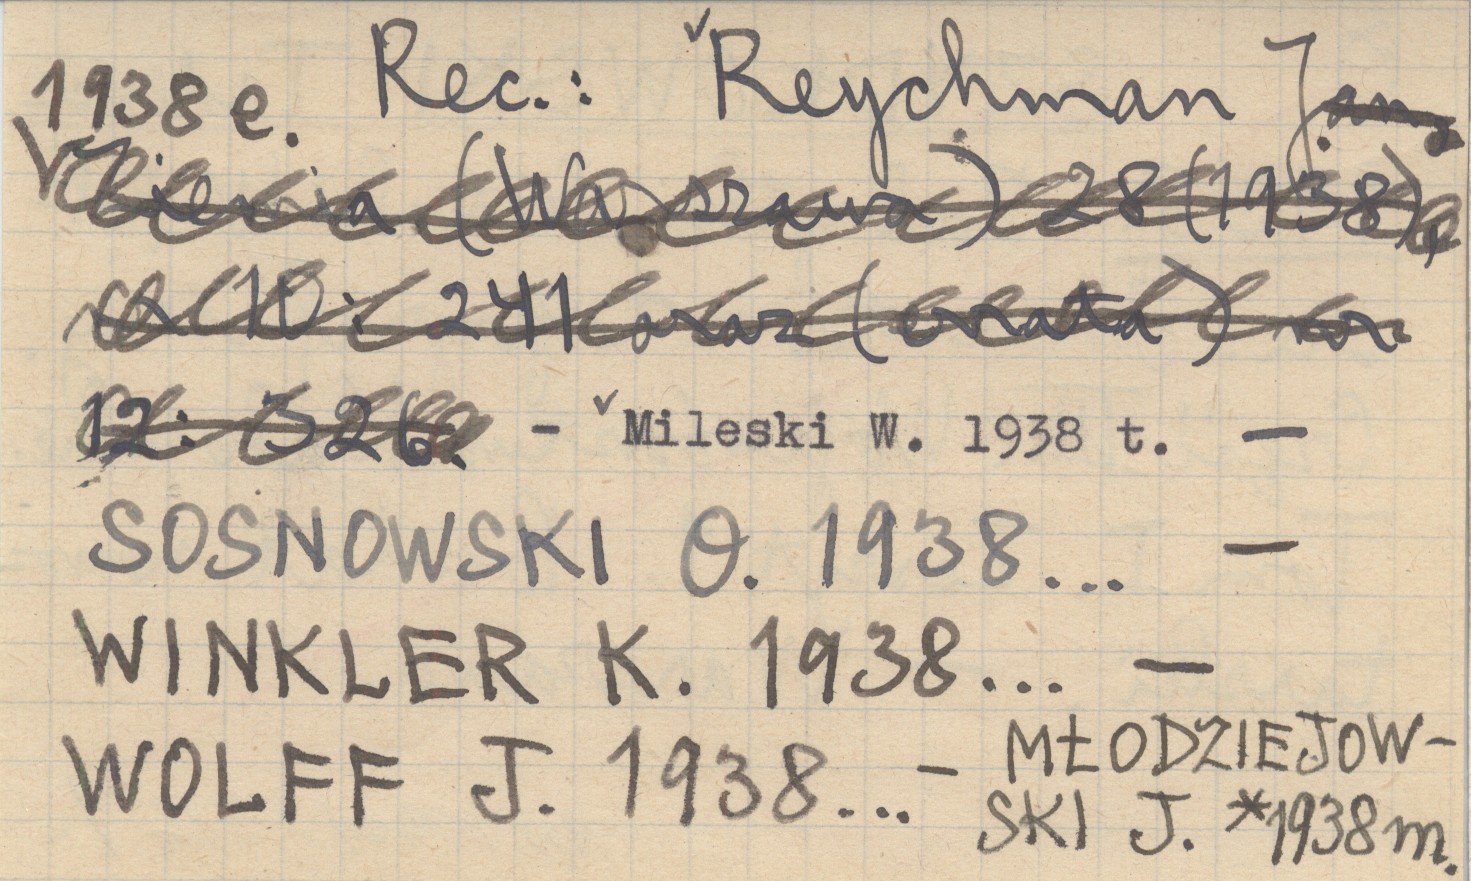 Rec.: Reychman Jan,
1938 e.
Ziemia (Warszawa) 28 (1938),
nr 10: 241 oraz (errata) nr
12: 326. - Mileski W. 1938 t. —
SOSNOWSKI O. 1938... —
WINKLER K. 1938... —
WOLFF J. 1938... - MŁODZIEJOW-
SKI J. *1938 m.